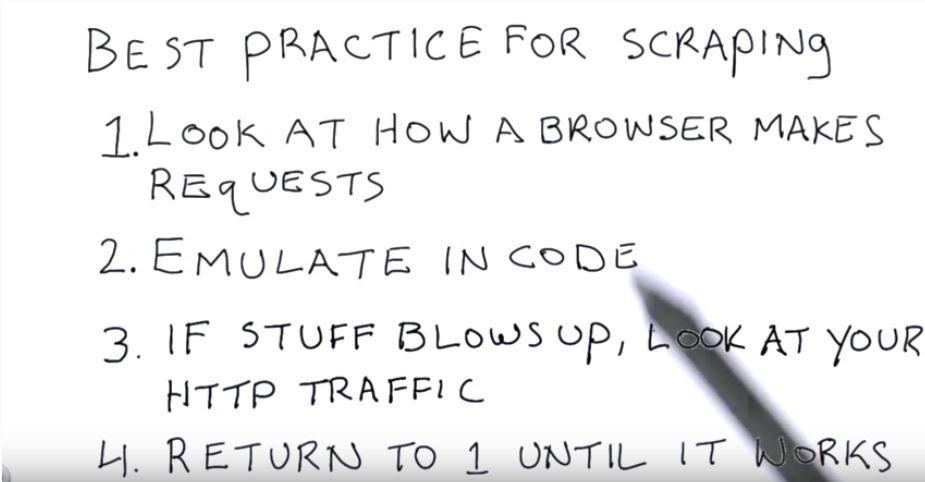 BEST PRACTICE FOR SCRAPING
1. LOOK AT HOW A BROWSER MAKES
REQUESTS
2. EMULATE IN CODE
3. IF STUFF BLOWS UP, LOOK AT YOUR
HTTP TRAFFIC
4. RETURN TO 1 UNTIL IT WORKS